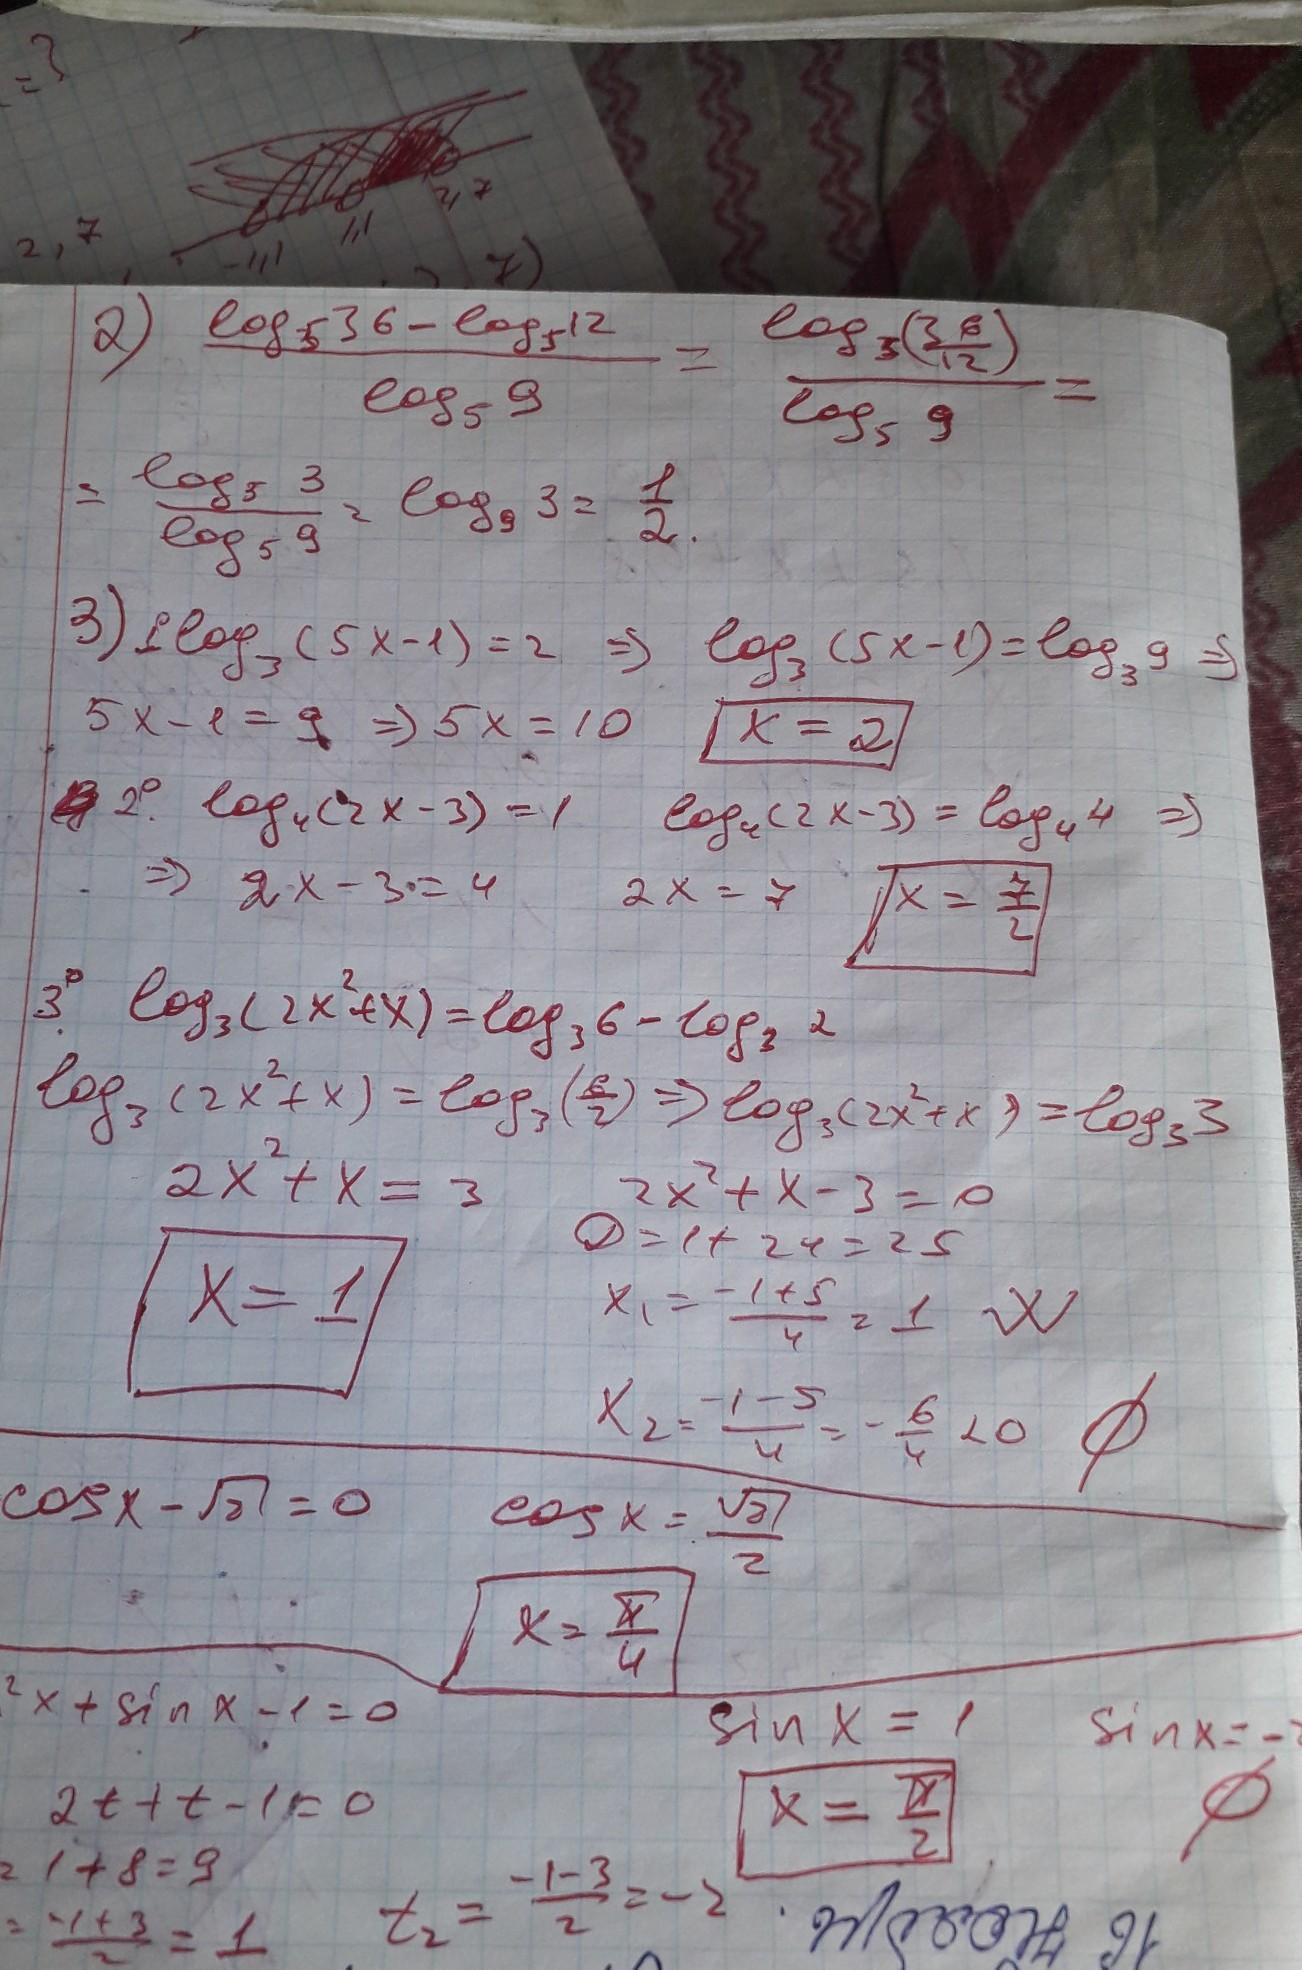 = 3
2,7
-1,1
1,1
2,7
7)
2) (log₅36 - log₅12)/(log₅ 9) = (log₅(36/12))/(log₅ 9) =
= (log₅ 3)/(log₅ 9) = log₉ 3 = 1/2.
3) 1 log₃(5x-1) = 2 ⇒ log₃(5x-1) = log₃9 ⇒
5x-1 = 9 ⇒ 5x = 10 x = 2
2° log₄(2x-3) = 1 log₄(2x-3) = log₄4 ⇒
⇒ 2x-3 = 4 2x = 7 x = 7/2
3° log₃(2x²+x) = log₃6 - log₃ 2
log₃(2x²+x) = log₃(6/2) ⇒ log₃(2x²+x) = log₃3
2x²+x = 3 2x²+x-3 = 0
D = 1+24 = 25
x = 1 x₁ = (-1+5)/4 = 1
x₂ = (-1-5)/4 = -6/4 < 0 ∅
cosx - √2 = 0 cosx = √2/2
x = π/4
²x + sinx - 1 = 0 sinx = 1 sinx = -2
2t+t-1 = 0 x = π/2 ∅
= 1+8 = 9
= (-1+3)/2 = 1 t₂ = (-1-3)/2 = -2
16